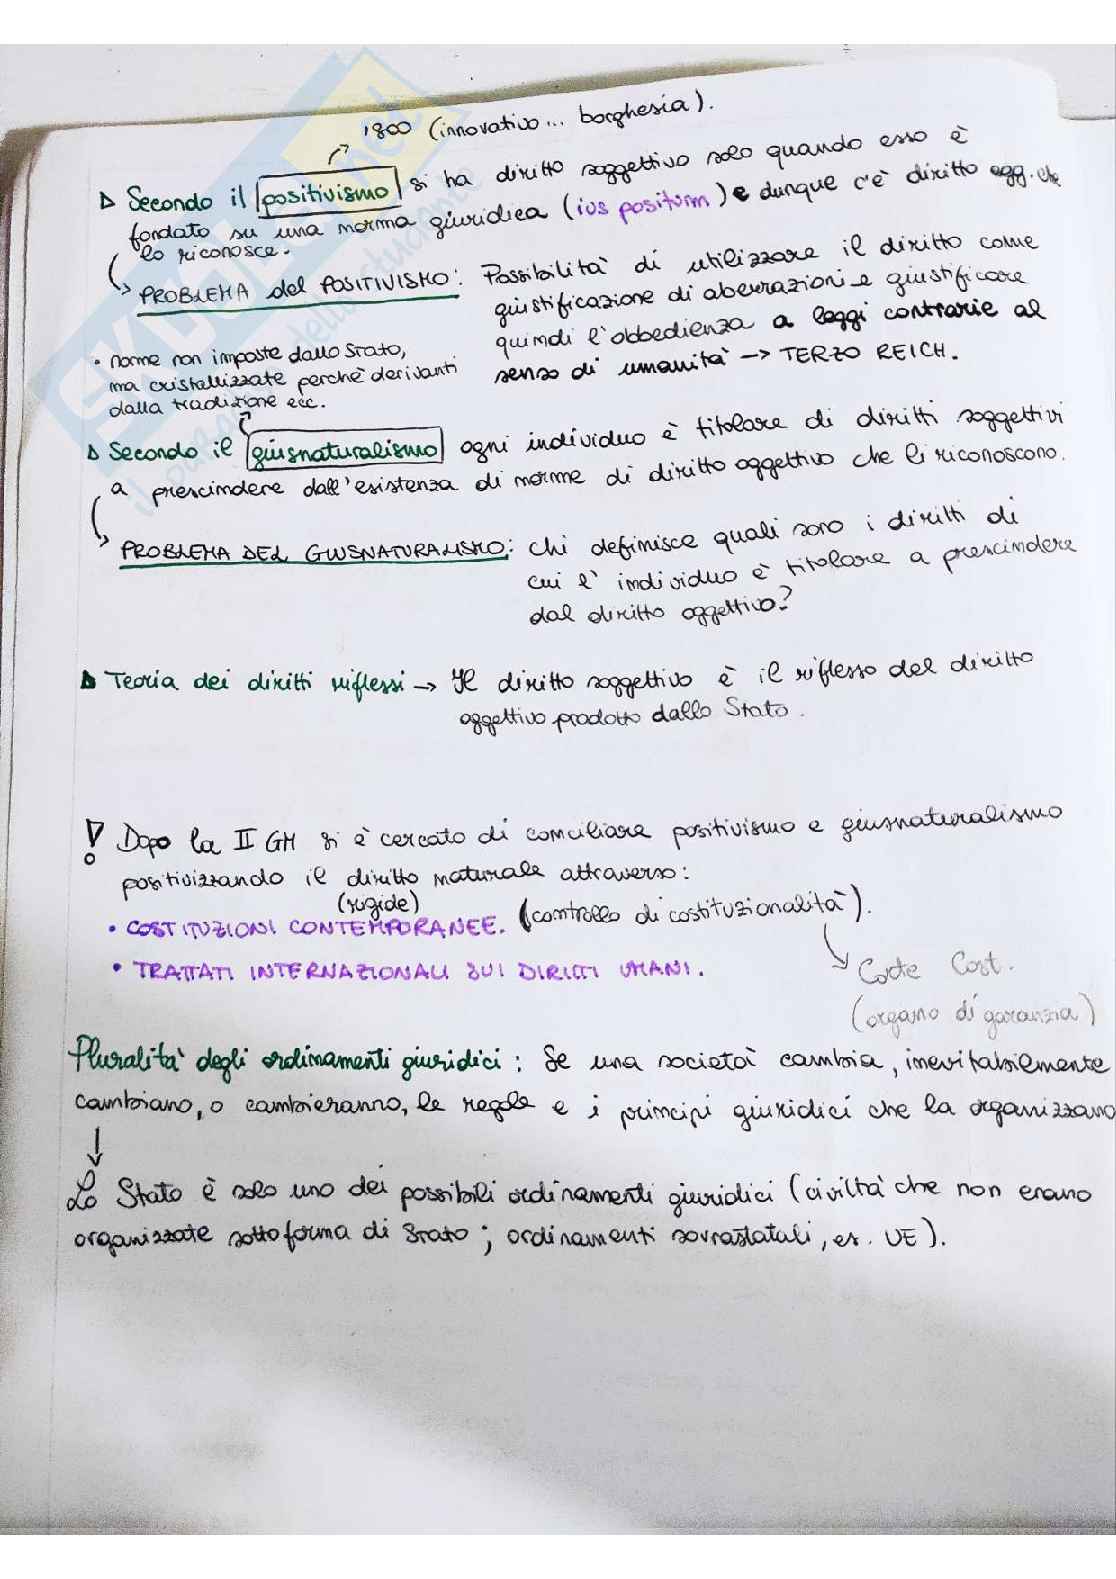 1800 (innovativo... borghesia).
Secondo il positivismo si ha diritto soggettivo solo quando esso è
fondato su una norma giuridica (ius positum) e dunque c'è diritto ogg. che
lo riconosce.
PROBLEMA del POSITIVISMO: Possibilità di utilizzare il diritto come
giustificazione di aberrazioni e giustificare
quindi l'obbedienza a leggi contrarie al
senso di umanità → TERZO REICH.
• norme non imposte dallo Stato,
ma cristallizzate perchè derivanti
dalla tradizione ecc.
Secondo il giusnaturalismo ogni individuo è titolare di diritti soggettivi
a prescindere dall'esistenza di norme di diritto oggettivo che li riconoscono.
PROBLEMA DEL GIUSNATURALISMO: chi definisce quali sono i diritti di
cui l'individuo è titolare a prescindere
dal diritto oggettivo?
Teoria dei diritti riflessi → Il diritto soggettivo è il riflesso del diritto
oggettivo prodotto dallo Stato.
! Dopo la II GM si è cercato di conciliare positivismo e giusnaturalismo
positivizzando il diritto naturale attraverso:
(rigide)
• COSTITUZIONI CONTEMPORANEE. (controllo di costituzionalità).
• TRATTATI INTERNAZIONALI SUI DIRITTI UMANI.
Corte Cost.
(organo di garanzia)
Pluralità degli ordinamenti giuridici: Se una società cambia, inevitabilmente
cambiano, o cambieranno, le regole e i principi giuridici che la organizzano
↓
Lo Stato è solo uno dei possibili ordinamenti giuridici (civiltà che non erano
organizzate sotto forma di Stato; ordinamenti sovrastatali, es. UE).